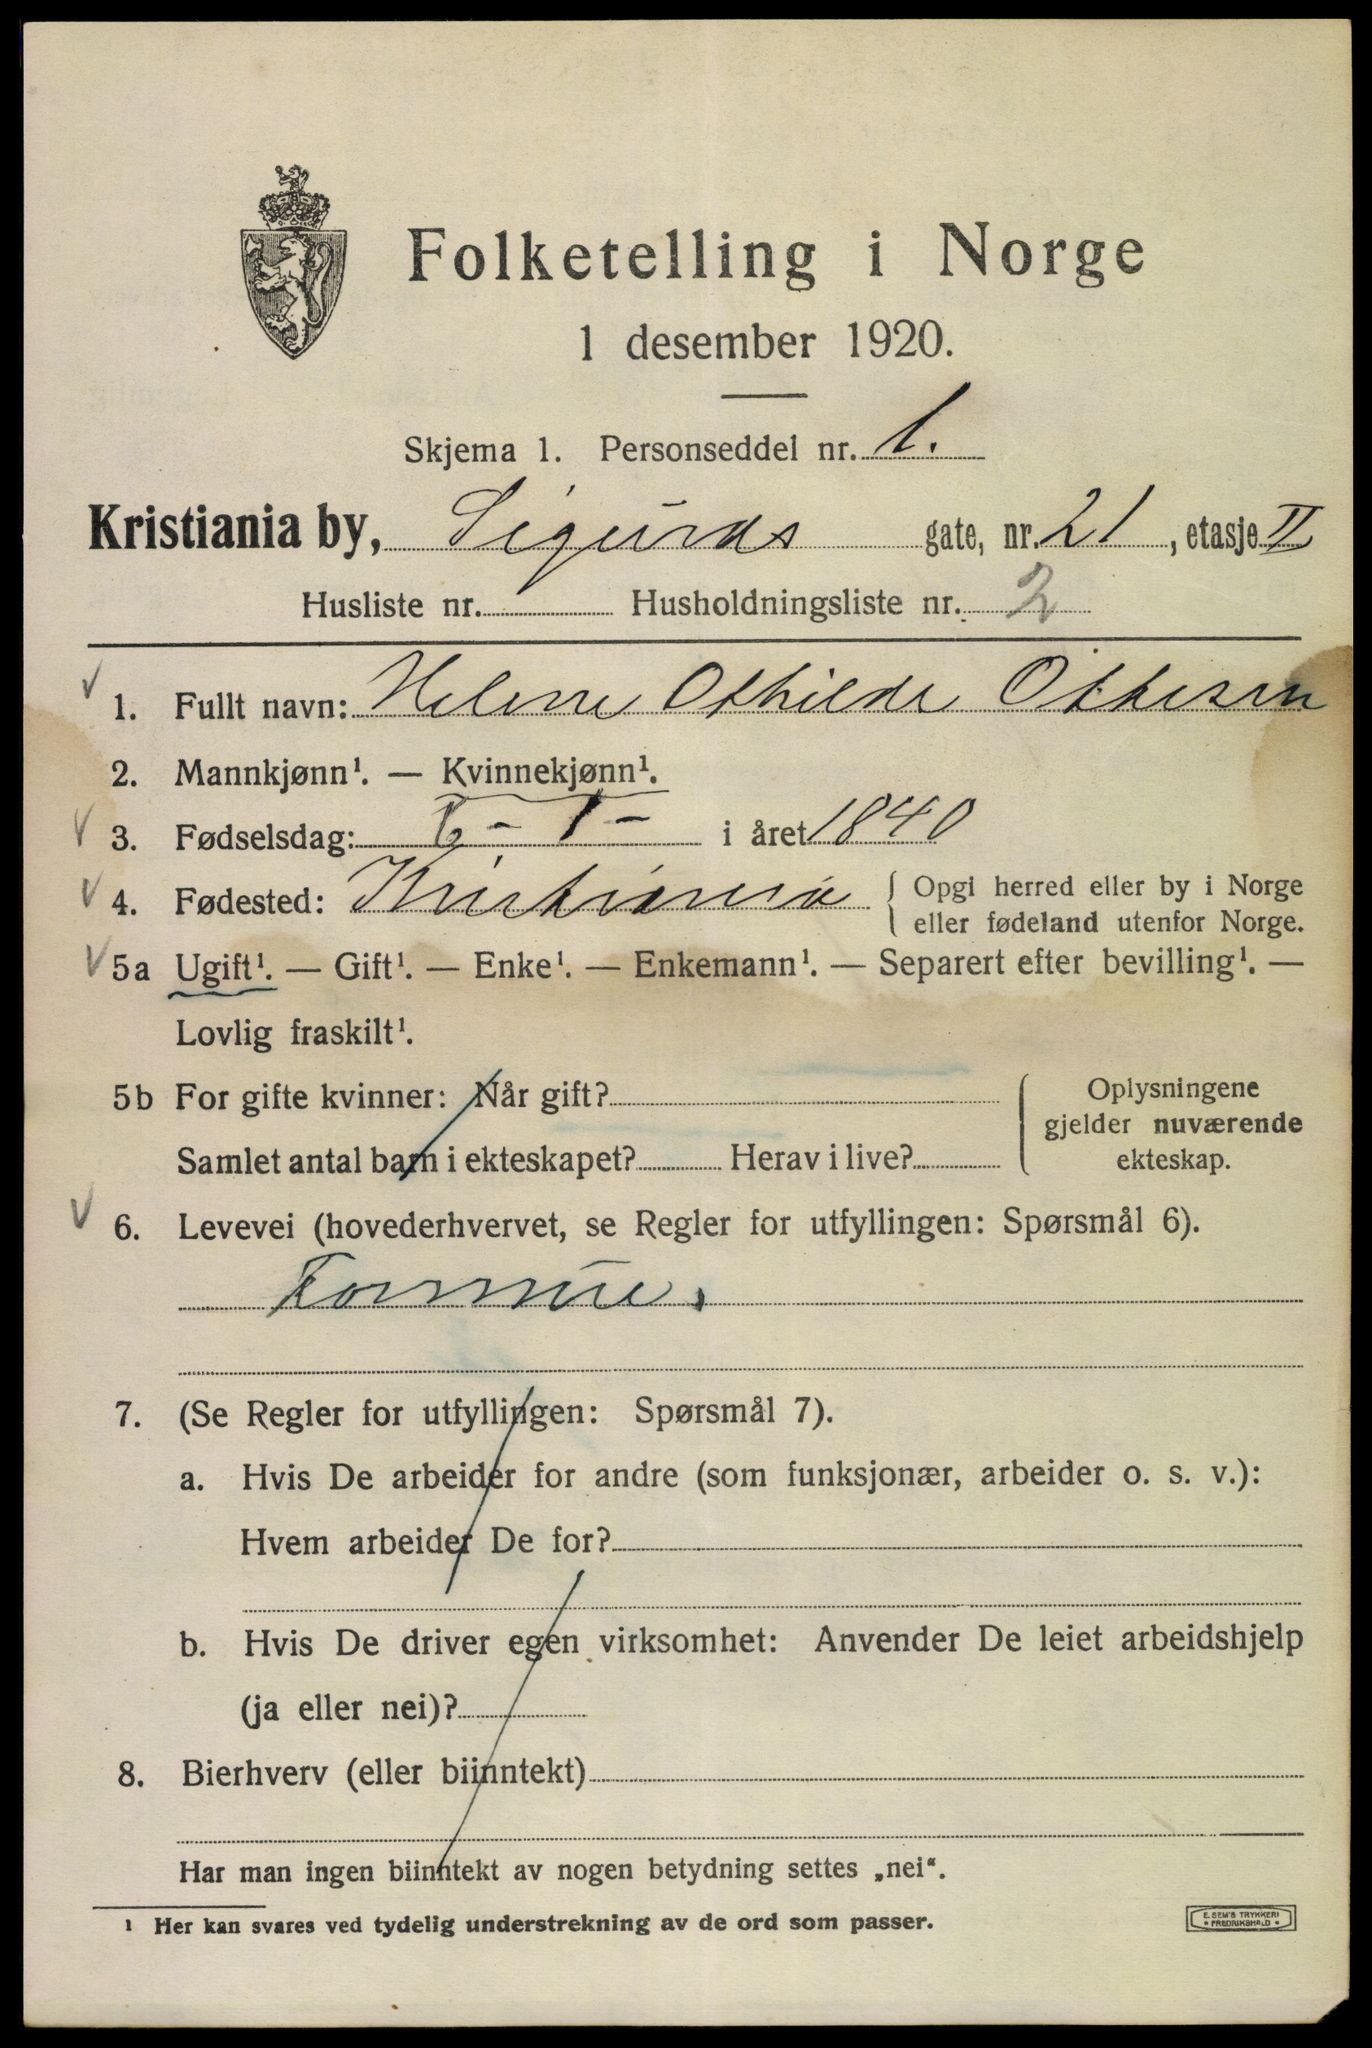 Folketelling i Norge
1 desember 1920.
Skjema 1. Personseddel nr. 1.
Kristiania by, Sigurds gate, nr. 21, etasje II
Husliste nr. Husholdningsliste nr. 2
1. Fullt navn: Helene Othilde Ottesen
2. Mannkjønn¹. — Kvinnekjønn¹.
3. Fødselsdag: 6 - 1 - i året 1840
4. Fødested: Kristiania { Opgi herred eller by i Norge
eller fødeland utenfor Norge.
5a Ugift¹. — Gift¹. — Enke¹. — Enkemann¹. — Separert efter bevilling¹. —
Lovlig fraskilt¹.
5b For gifte kvinner: Når gift? { Oplysningene
gjelder nuværende
Samlet antal barn i ekteskapet? Herav i live? ekteskap.
6. Levevei (hovederhvervet, se Regler for utfyllingen: Spørsmål 6).
Formue.
7. (Se Regler for utfyllingen: Spørsmål 7).
a. Hvis De arbeider for andre (som funksjonær, arbeider o. s. v.):
Hvem arbeider De for?
b. Hvis De driver egen virksomhet: Anvender De leiet arbeidshjelp
(ja eller nei)?
8. Bierhverv (eller biinntekt)
Har man ingen biinntekt av nogen betydning settes „nei“.
¹ Her kan svares ved tydelig understrekning av de ord som passer.
E. SEM'S TRYKKERI
• FREDRIKSHALD •